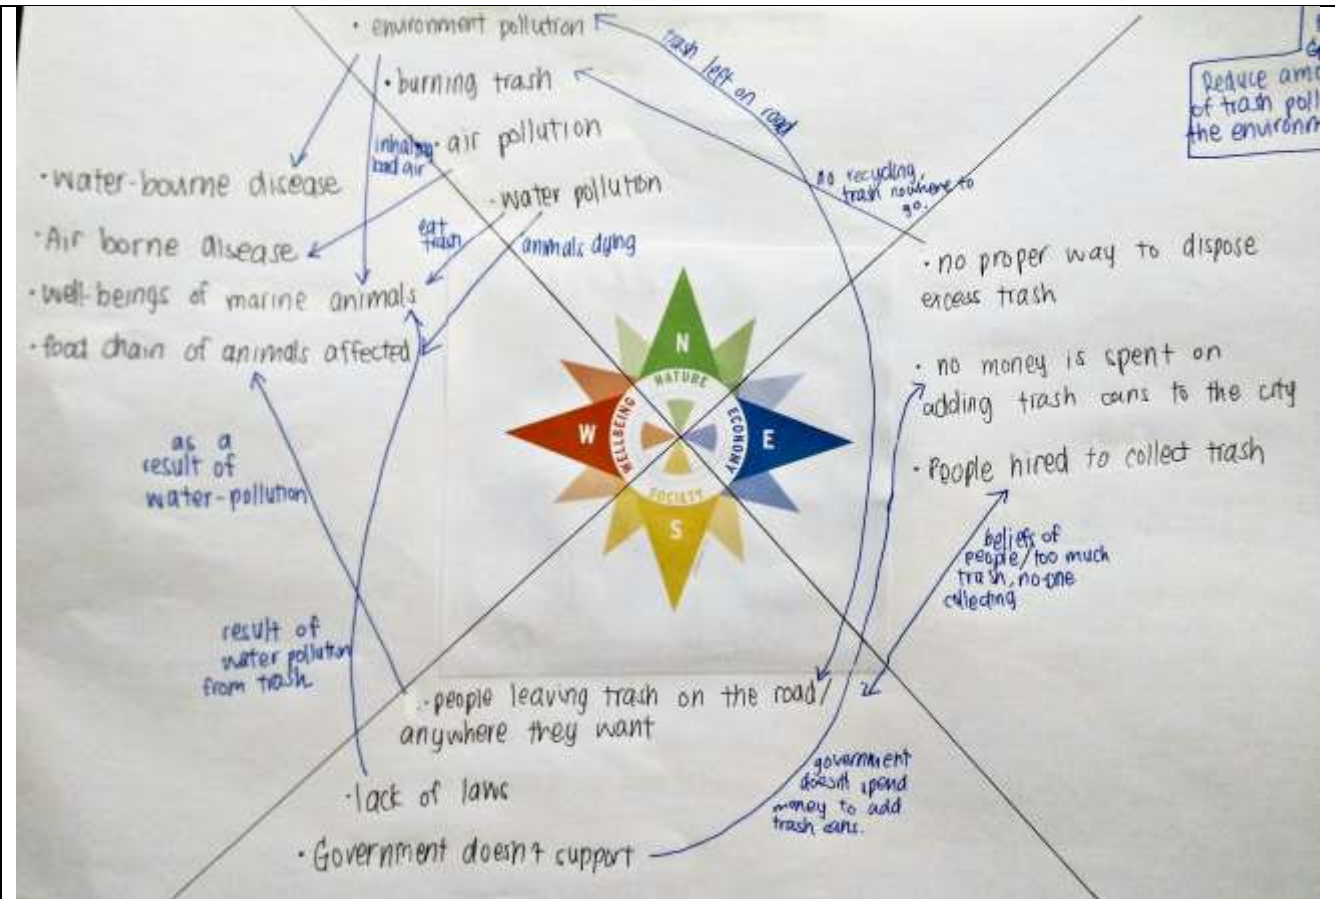 · environment pollution
· burning trash
· air pollution
· water pollution
trash left on road
no recycling,
trash nowhere to
go.
inhaling
bad air
eat
trash
animals dying
· water-bourne disease
· Air borne disease
· well-beings of marine animals
· food chain of animals affected
as a
result of
water-pollution
result of
water pollution
from trash
N
NATURE
W
WELLBEING
ECONOMY
E
SOCIETY
S
Reduce
of trash
the
· no proper way to dispose
excess trash
· no money is spent on
adding trash cans to the city
· People hired to collect trash
beliefs of
people/too much
trash, no-one
collecting
· people leaving trash on the road/
anywhere they want
· lack of laws
· Government doesn't support
government
doesn't spend
money to add
trash cans.